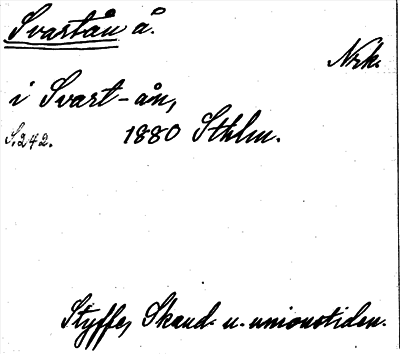 Svartån å.
Nrk.
i Svart-ån,
S. 242. 1880 Sthlm.
Styffe, Skand. u. unionstiden.